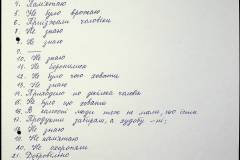 4. Пам'ятаю
5. Не було врожаю
6. Приїзжали чоловіки
7. Не знаю
8. Не знаю
9. —
10. Не знаю
11. Не боронилися
12. Не було чого ховати
13. Не знаю
14. Приходило по декілька чоловік
15. Не було що ховати
16. В колгоспі люди теж не мали, що їсти
17. Продукти забирали, а худобу - ні;
18. Не знаю
19. Не пам'ятаю
20. Не охороняли
21. Добровільно